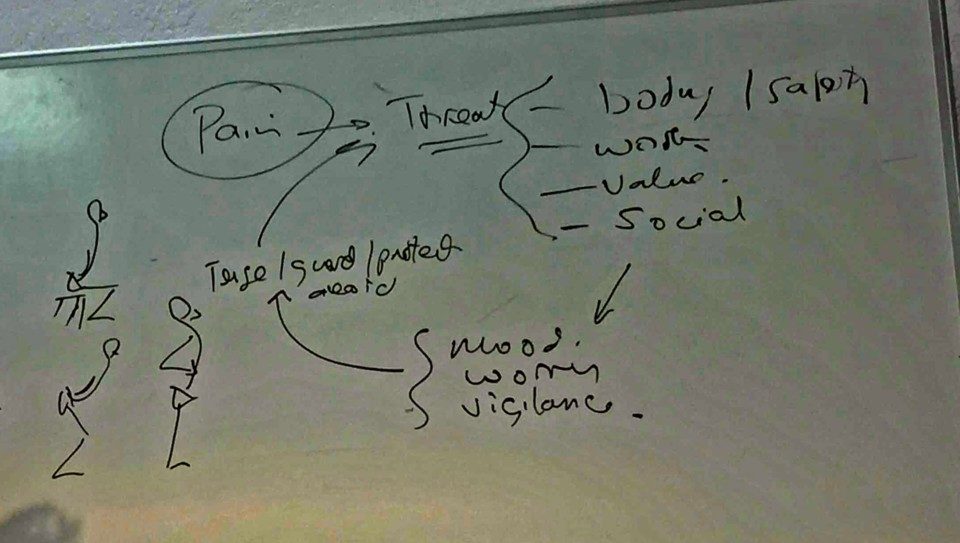 Pain → Threat
– body / safety
– work
– value.
– social
Tense / guard / protect
avoid
mood.
worry
vigilance.